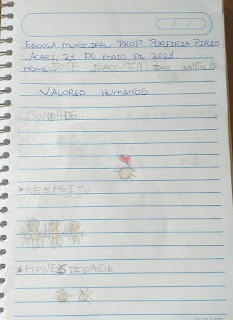 ESCOLA MUNICIPAL PROFª PORFIRIA PIRES
ACARI, 21 DE MAIO DE 2021.
NOME: JOSÉ JOAQUIM DOS SANTOS
VALORES HUMANOS
BONDADE
*RESPEITO
*HONESTIDADE